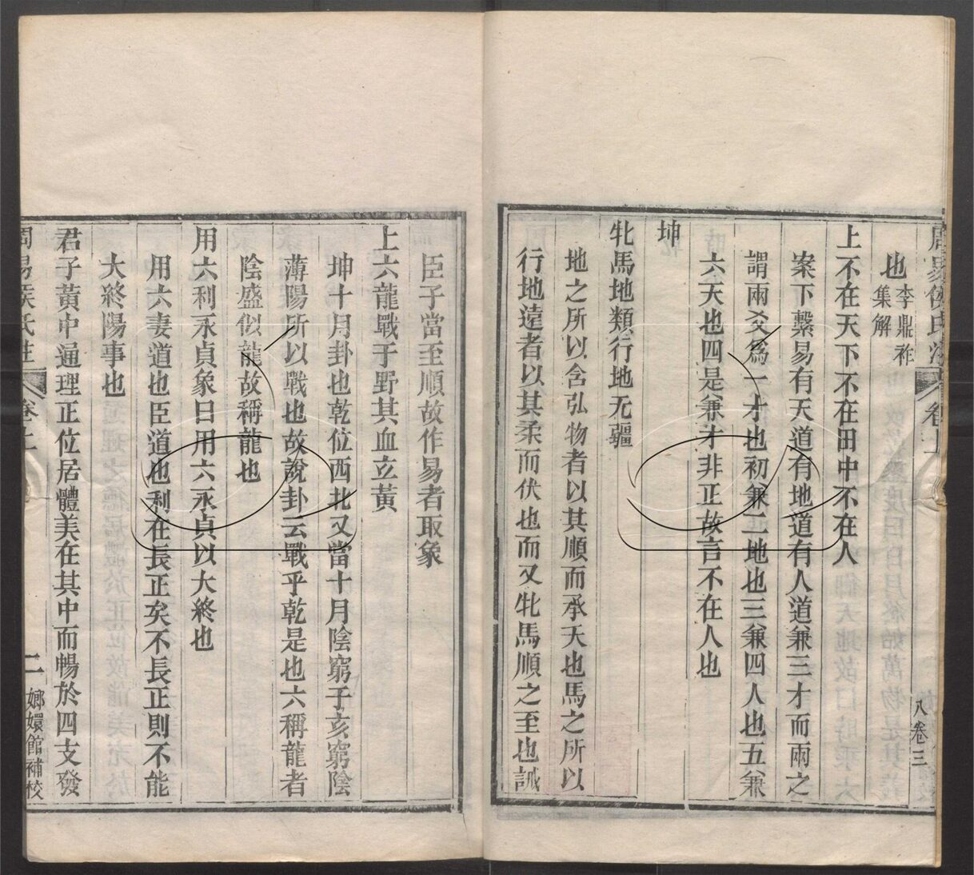 周易侯氏注 卷上
八卷三
也李鼎祚
集解
上不在天下不在田中不在人
案下繫易有天道有地道有人道兼三才而兩之
謂兩爻爲一才也初兼二地也三兼四人也五兼
六天也四是兼才非正故言不在人也
坤
牝馬地類行地无疆
地之所以含弘物者以其順而承天也馬之所以
行地遠者以其柔而伏也而又牝馬順之至也誠
臣子當至順故作易者取象
上六龍戰于野其血立黃
坤十月卦也乾位西北又當十月陰窮于亥窮陰
薄陽所以戰也故說卦云戰乎乾是也六稱龍者
陰盛似龍故稱龍也
用六利永貞象曰用六永貞以大終也
用六妻道也臣道也利在長正矣不長正則不能
大終陽事也
君子黃中通理正位居體美在其中而暢於四支發
周易侯氏注 卷上
二
嫏嬛館補校